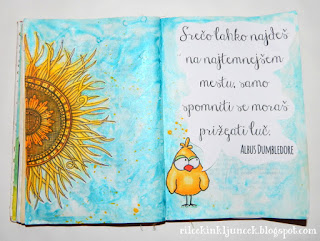 Srečo lahko najdeš
na najtemnejšem
mestu, samo
spomniti se moraš
prižgati luč.
ALBUS DUMBLEDORE
rdeckinkljuncek.blogspot.com